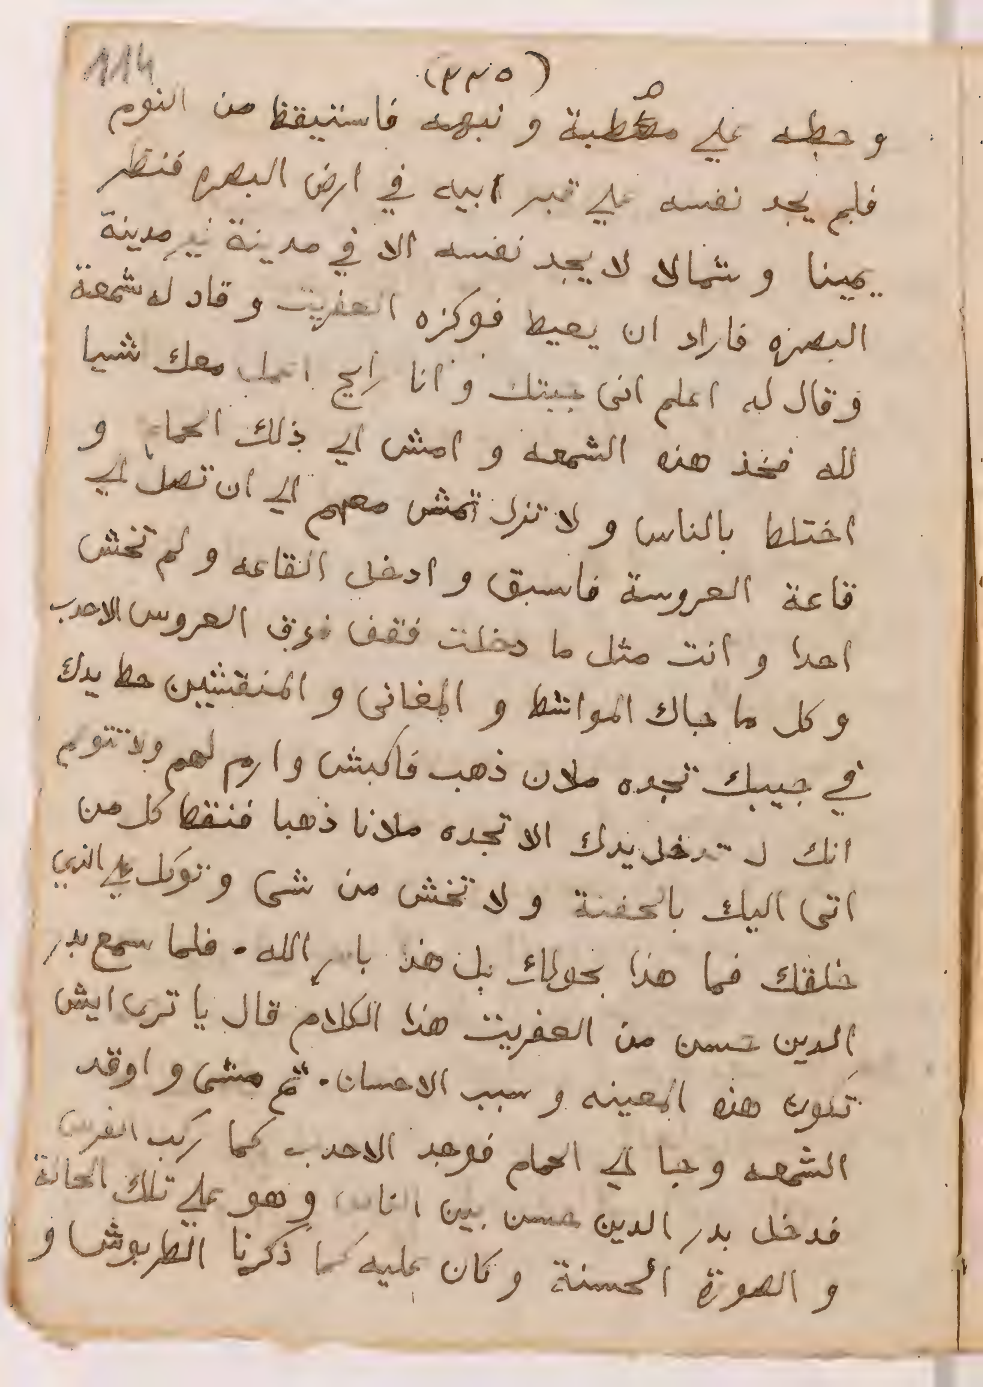 114
(٣٣٥)
و حطه علي مصطبة و نبهه فاستيقظ من النوم
فلم يجد نفسه علي قبر ابيه في ارض البصره فنظر
يمينا و شمالا لا يجد نفسه الا في مدينة غير مدينة
البصره فاراد ان يعيط فوكزه العفريت و قاد له شمعة
وقال له اعلم انى جبتك و انا رايح اعمل معك شيا
لله فخذ هذه الشمعه و امش الي ذلك الحمام و
اختلط بالناس و لا تزل تمش معهم الي ان تصل الي
قاعة العروسة فاسبق و ادخل القاعه و لم تخش
احدا و انت مثل ما دخلت فقف فوق العروس الاحدب
و كل ما جاك المواشط و المغانى و المنقشين حط يدك
في جيبك تجده ملان ذهب فاكبش و ارم لهم ولا تتوهم
انك لم تدخل يدك الا تجده ملانا ذهبا فنقط كل من
اتى اليك بالحفنة و لا تخش من شى و توكل علي الذي
خلقك فما هذا بحولك بل هذا بامر الله . فلما سمع بدر
الدين حسن من العفريت هذا الكلام قال يا ترى ايش
تكون هذه المعينه و سبب الاحسان . ثم مشى و اوقد
الشمعه و جا الي الحمام فوجد الاحدب كما ركب الفرس
فدخل بدر الدين حسن بين الناس و هو علي تلك الحالة
و الصورة الحسنة و كان عليه كما ذكرنا الطربوش و